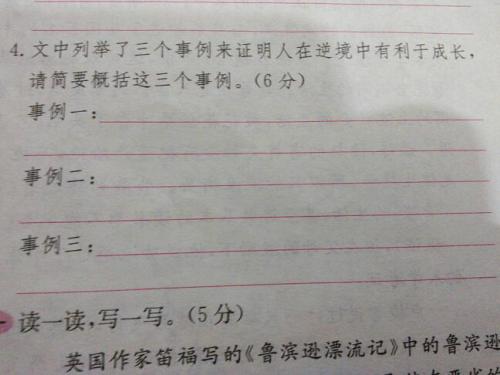 4. 文中列举了三个事例来证明人在逆境中有利于成长，
请简要概括这三个事例。（6分）
事例一：
事例二：
事例三：
读一读，写一写。（5分）
英国作家笛福写的《鲁滨逊漂流记》中的鲁滨逊